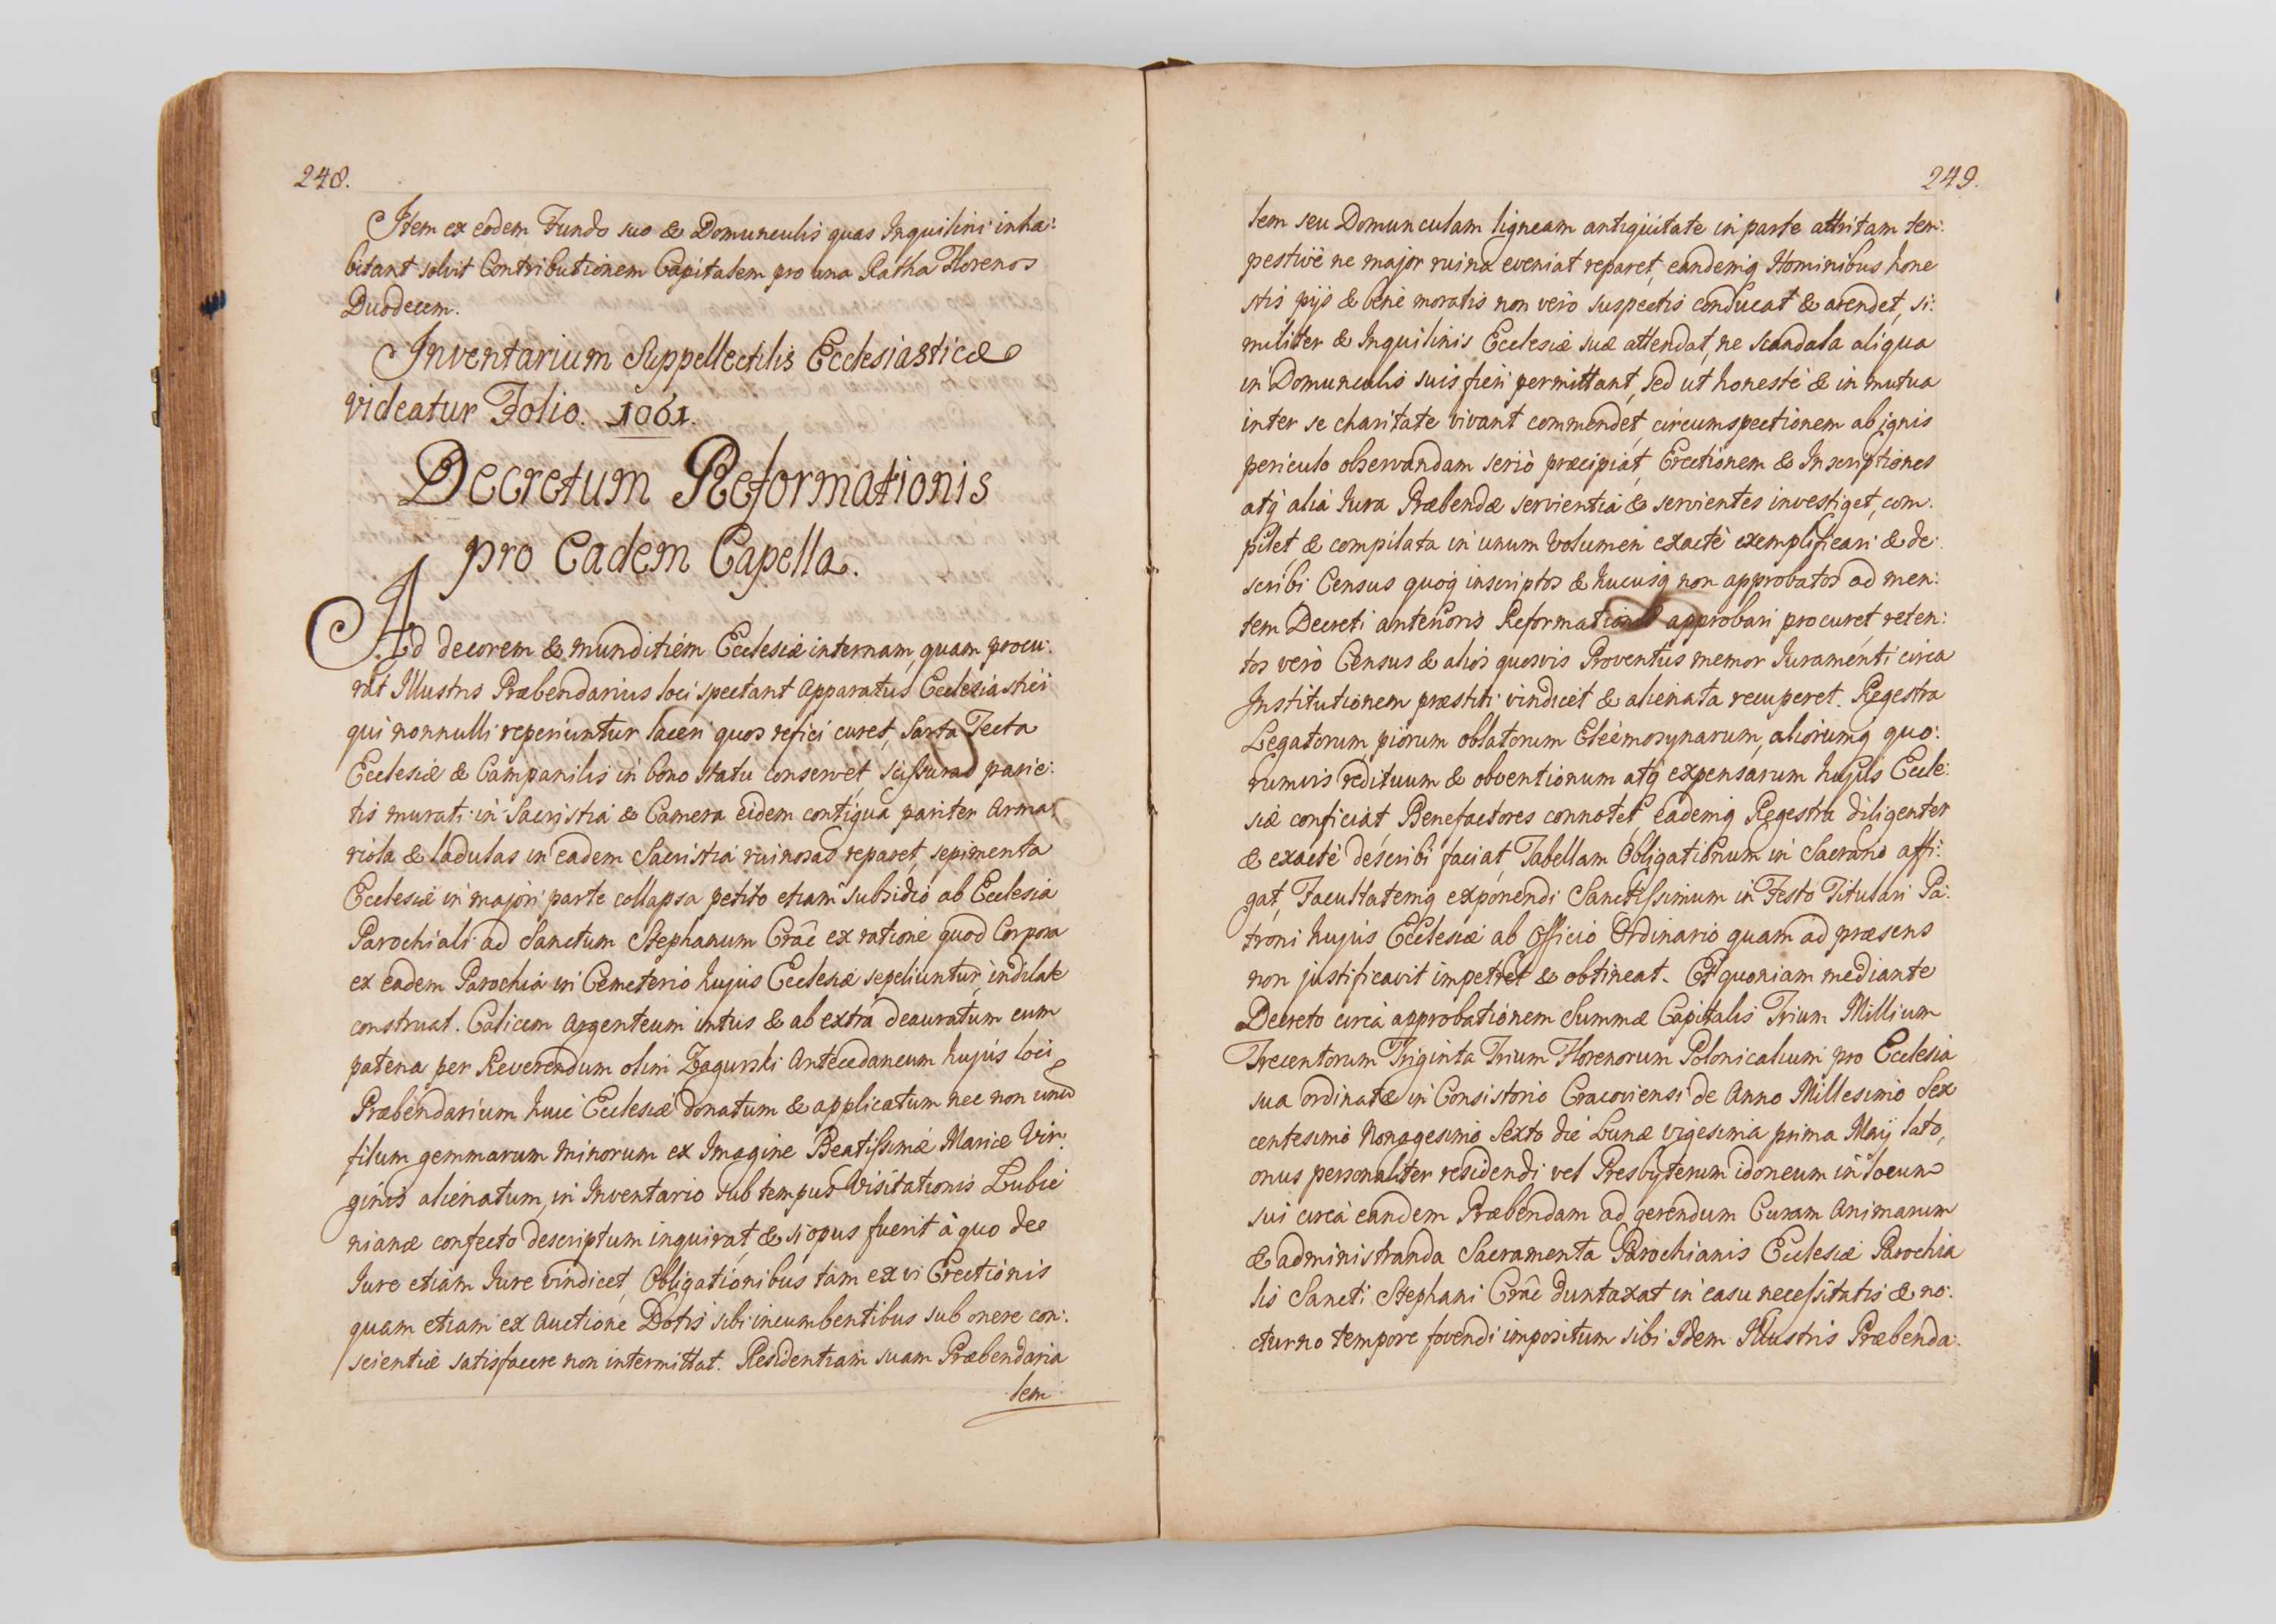 248.
Item ex eodem Fundo suo & Domunculis quas Inquilini inha:
bitant solvit Contributionem Capitalem pro una Ratha Florenos
Duodecem.
Inventarium Suppellectilis Ecclesiasticæ
videatur Folio. 1061.
Decretum Reformationis
pro Eadem Capella.
Ad decorem & munditiem Ecclesiæ internam, quam procu:
rat Illustris Præbendarius loci spectant Apparatus Ecclesiastici
qui nonnulli reperiuntur laceri quos refici curet, Sarta Tecta
Ecclesiæ & Campanilis in bono statu conservet, scissuras parie:
tis murati in Sacristia & Camera eidem contigua pariter Arma:
riola & ladulas in eadem Sacristia ruinosas reparet, sepimenta
Ecclesiæ in majori parte collapsa petito etiam subsidio ab Ecclesia
Parochiali ad Sanctum Stephanum Crâc ex ratione quod Corpora
ex eadem Parochia in Cemeterio hujus Ecclesiæ sepeliuntur, indilate
construat. Calicem Argenteum intus & ab extra deauratum cum
patena per Reverendum olim Zagurski Antecedaneum hujus loci
Præbendarium huic Ecclesiæ donatum & applicatum nec non unũ
filum gemmarum minorum ex Imagine Beatissimæ Mariæ Vir:
ginis alienatum, in Inventario sub tempus Visitationis Lubie
nianæ confecto descriptum inquirat, & si opus fuerit à quo de
Iure etiam Iure vindicet, Obligationibus tam ex vi Erectionis
quam etiam ex Auctione Dotis sibi incumbentibus sub onere con:
scientiæ satisfacere non intermittat. Residentiam suam Præbendaria
lem
249.
lem seu Domunculam ligneam antiquitate in parte attritam tem:
pestive ne major ruina eveniat reparet, eandemq Hominibus hone
stis pijs & bene moratis non vero suspectis conducat & arendet, si:
militer & Inquilinis Ecclesiæ suæ attendat, ne scandala aliqua
in Domunculis suis fieri permittant, sed ut honestè & in mutua
inter se charitate vivant commendet, circumspectionem ab ignis
periculo observandam seriò præcipiat, Erectionem & Inscriptiones
atq alia Iura Præbendæ servientia & servientes investiget, com:
pilet & compilata in unum volumen exactè exemplificari & de:
scribi Census quoq inscriptos & hucusq non approbatos ad men:
tem Decreti anterioris Reformationis approbari procuret reten:
tos verò Census & alios quosvis Proventus memor Iuramenti circa
Institutionem præstiti vindicet & alienata recuperet. Regestra
Legatorum piorum oblatorum Eleemosynarum, aliorumq quo:
rumvis redituum & obventionum atq expensarum hujus Eccle:
siæ conficiat, Benefactores connotet, eademq Regestra diligenter
& exactè describi faciat, Tabellam Obligationum in Sacrario affi:
gat, Facultatemq exponendi Sanctissimum in Festo Titulari Pa:
troni hujus Ecclesiæ ab Officio Ordinario quam ad præsens
non justificavit impetret & obtineat. Et quoniam mediante
Decreto circa approbationem Summæ Capitalis Trium Millium
Trecentorum Triginta Trium Florenorum Polonicalium pro Ecclesia
sua ordinatæ in Consistorio Cracoviensi de Anno Millesimo Sex
centesimo Nonagesimo Sexto die Lunæ vigesima prima Maij lato,
onus personaliter residendi vel Presbyterum idoneum in locum
sui circa eandem Præbendam ad gerendum Curam Animarum
& administranda Sacramenta Parochianis Ecclesiæ Parochia
lis Sancti Stephani Crâc duntaxat in casu necessitatis & no:
cturno tempore fovendi impositum sibi Idem Illustris Præbenda: